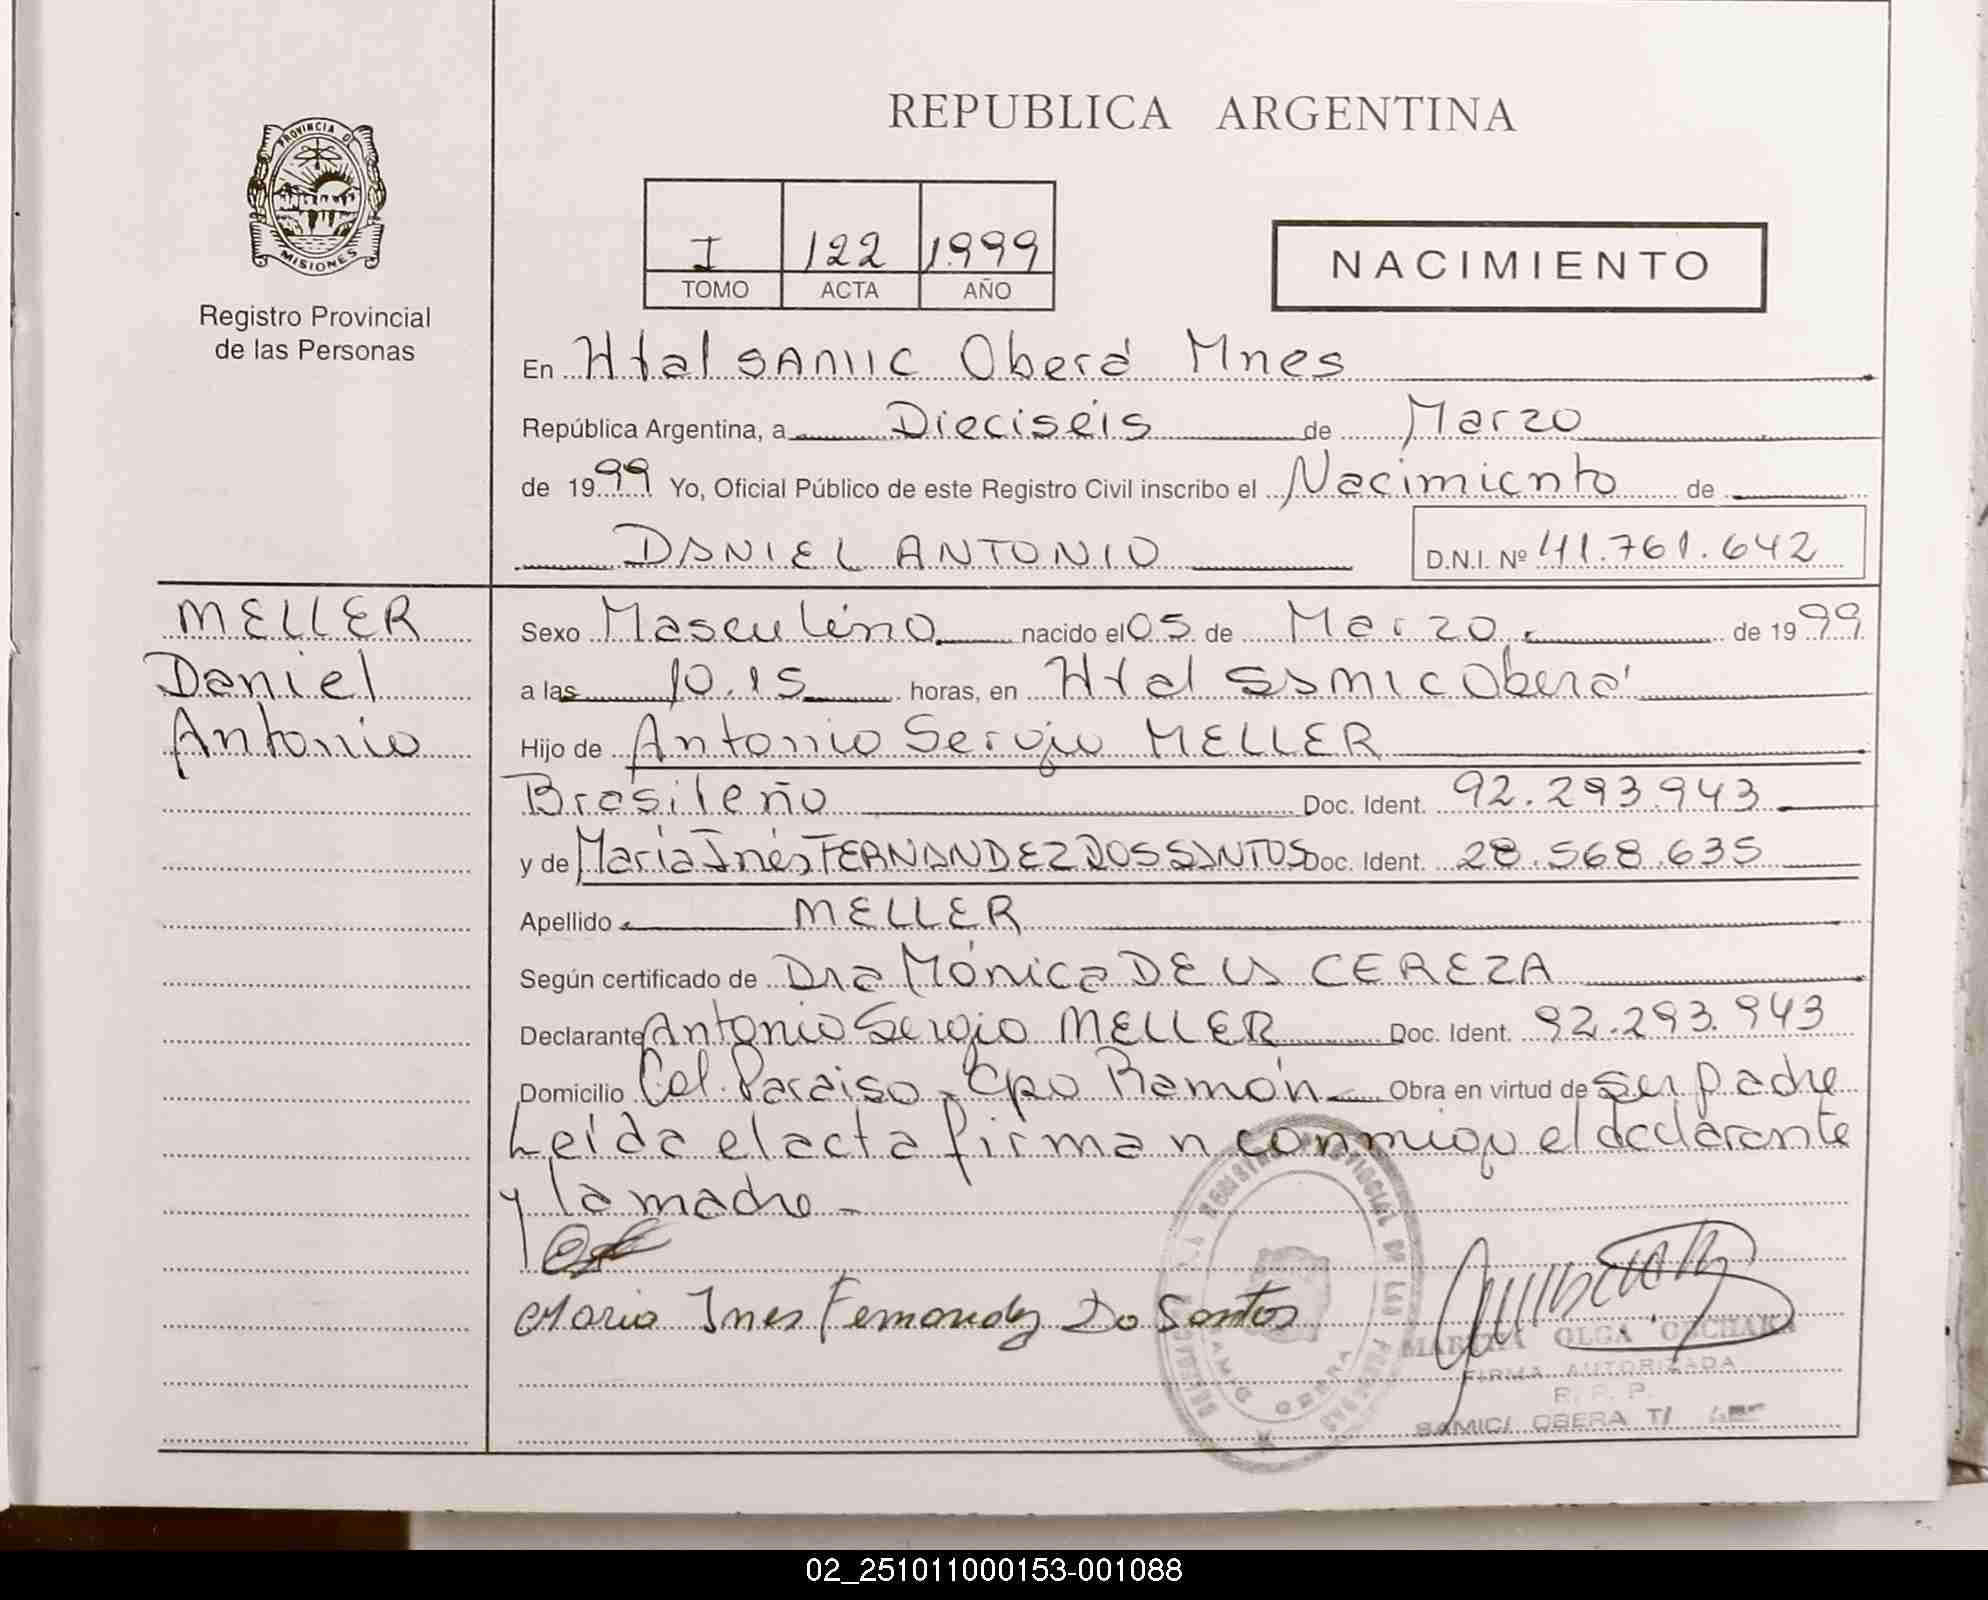 REPUBLICA ARGENTINA
PROVINCIA DE
MISIONES
Registro Provincial
de las Personas
I 122 1999
TOMO ACTA AÑO
NACIMIENTO
En Htal SAMIC Oberá Mnes
República Argentina, a Dieciséis de Marzo
de 1999 Yo, Oficial Público de este Registro Civil inscribo el Nacimiento de
DANIEL ANTONIO D.N.I. Nº 41.761.642
MELLER
Daniel
Antonio
Sexo Masculino nacido el 05 de Marzo de 1999
a las 10.15 horas, en Htal SAMIC Oberá
Hijo de Antonio Sergio MELLER
Brasileño Doc. Ident. 92.293.943
y de María Inés FERNANDEZ DOS SANTOS Doc. Ident. 28.568.635
Apellido MELLER
Según certificado de Dra Mónica DE LA CEREZA
Declarante Antonio Sergio MELLER Doc. Ident. 92.293.943
Domicilio Col. Paraiso - Cpo Ramón Obra en virtud de ser padre
Leída el acta firman conmigo el declarante
y la madre -
Maria Ines Fernandez Do Santos
REGISTRO PROVINCIAL DE LAS PERSONAS
SAMIC OBERA
OLGA
FIRMA AUTORIZADA
R. P. P.
SAMIC/ OBERA T/
02_251011000153-001088